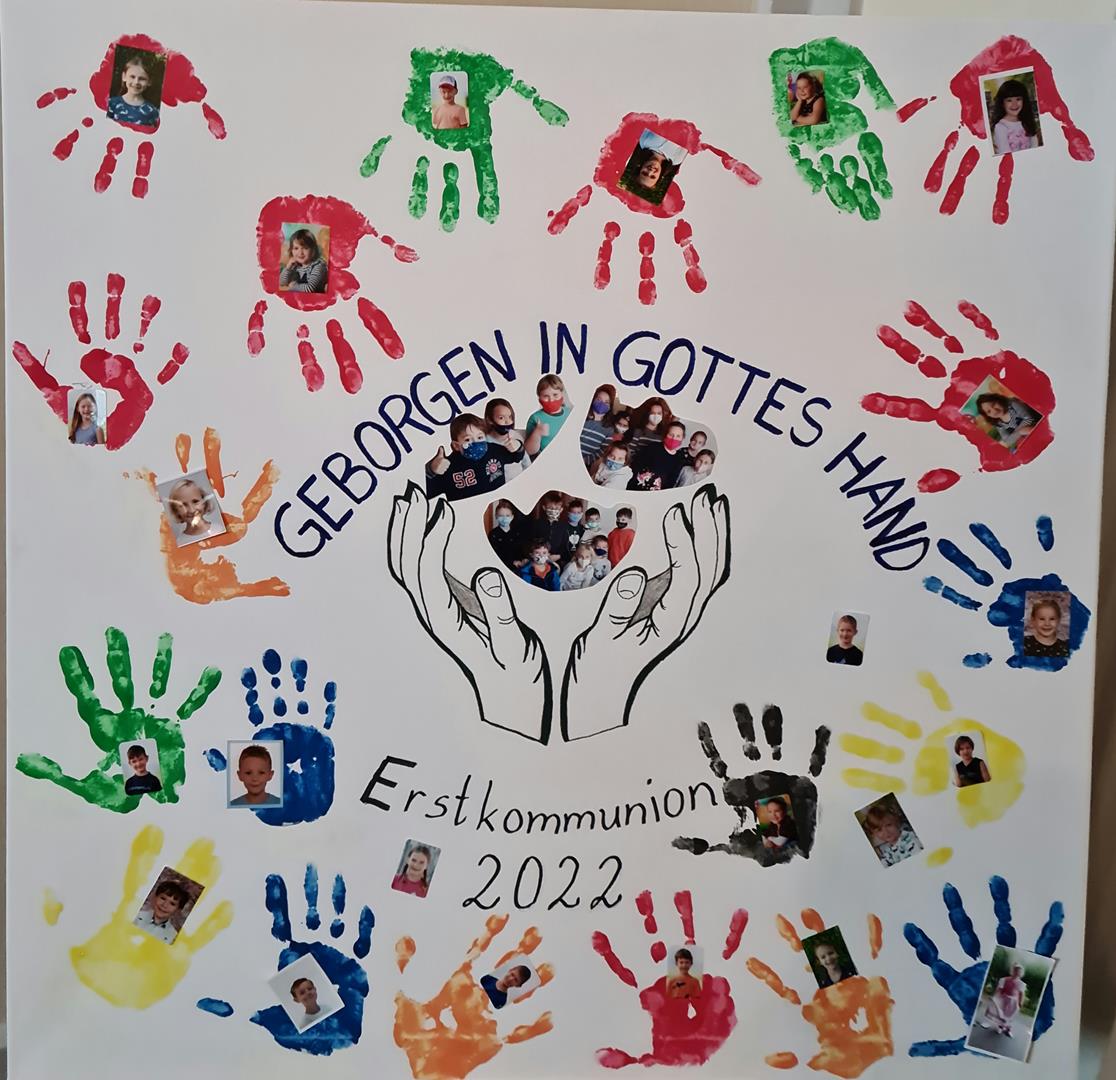 GEBORGEN IN GOTTES HAND
52
Erstkommunion
2022